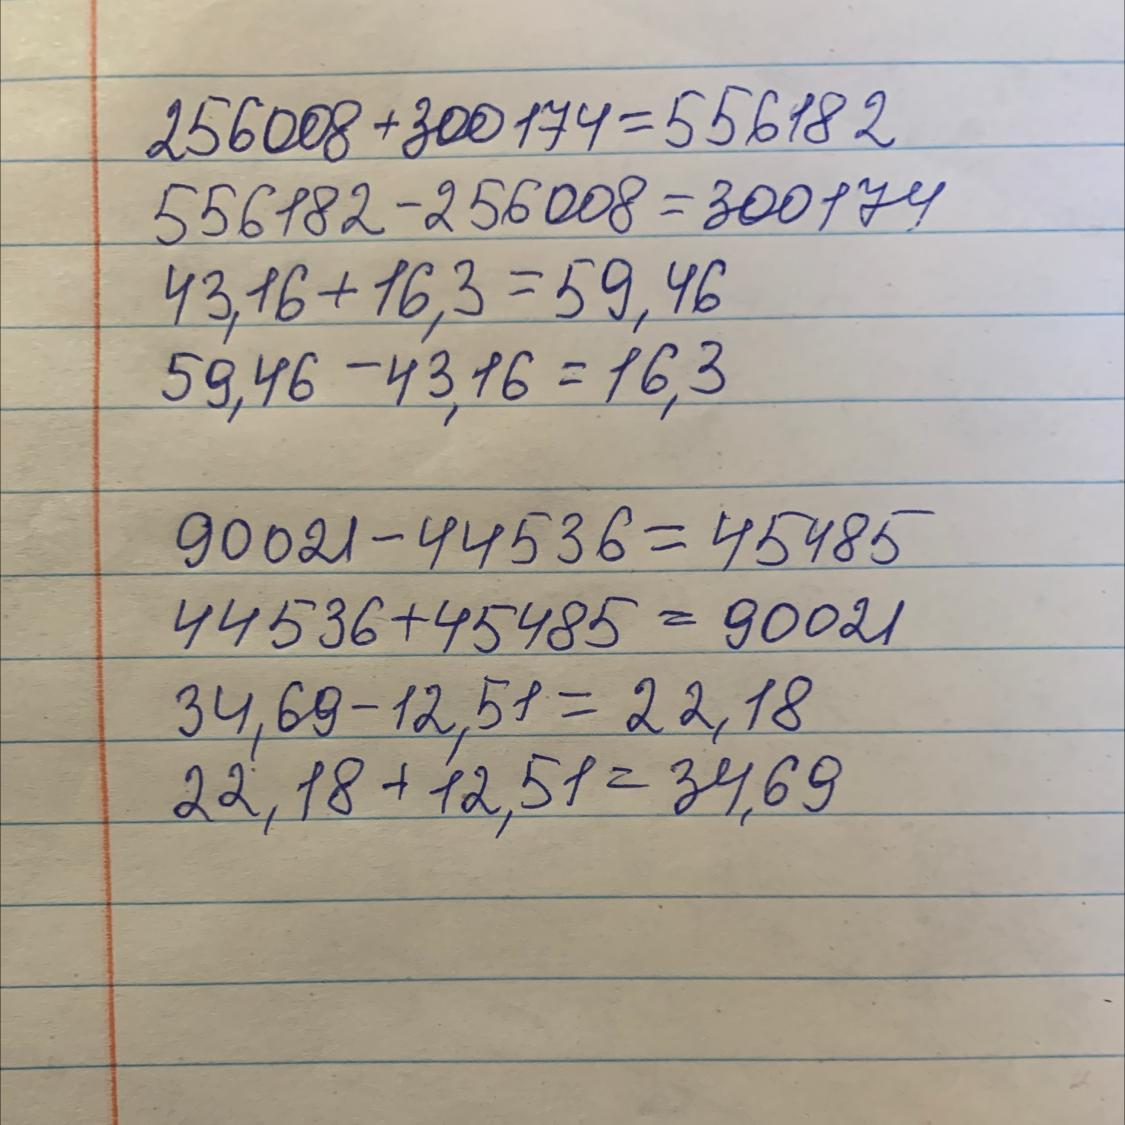 256008+300174=556182
556182-256008=300174
43,16+16,3=59,46
59,46-43,16=16,3
90021-44536=45485
44536+45485=90021
34,69-12,51=22,18
22,18+12,51=34,69